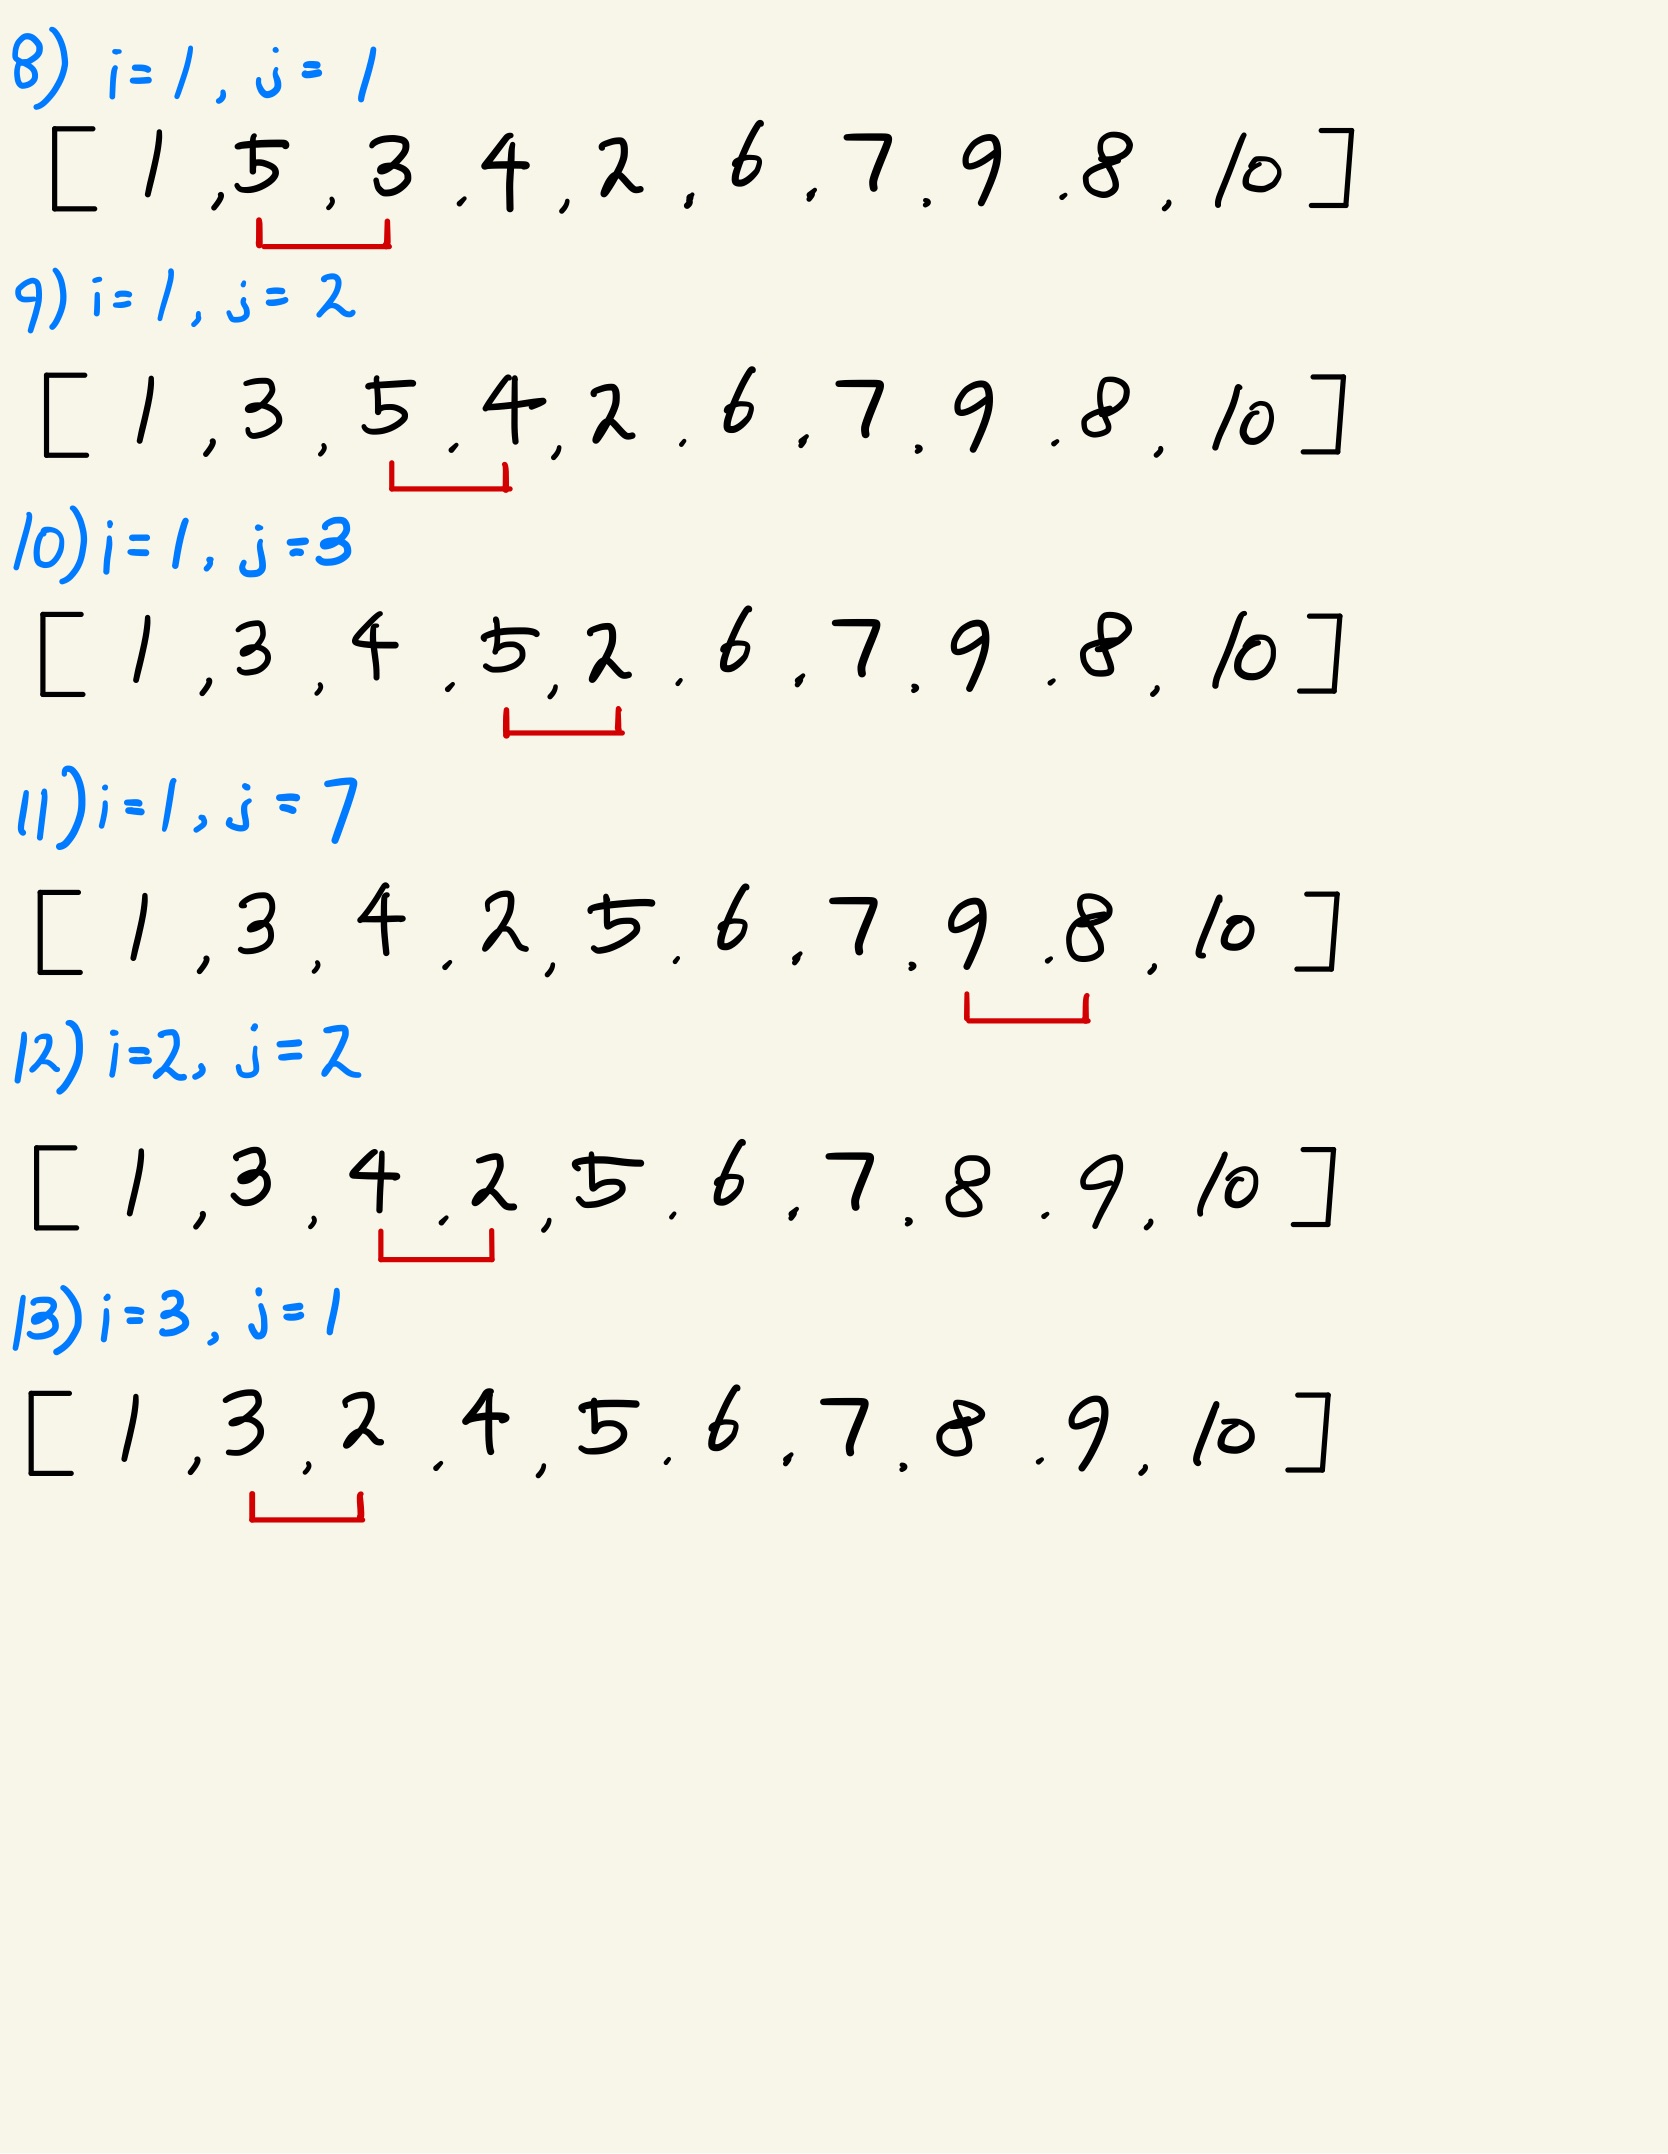 8) i=1, j=1
[1,5,3.4,2.6.7.9.8,10]
9) i=1, j=2
[1,3,5.4,2.6.7.9.8,10]
10) i=1, j=3
[1,3,4.5,2.6.7.9.8,10]
11) i=1, j=7
[1,3,4.2,5.6.7.9.8,10]
12) i=2, j=2
[1,3,4.2,5.6.7.8.9,10]
13) i=3, j=1
[1,3,2.4,5.6.7.8.9,10]